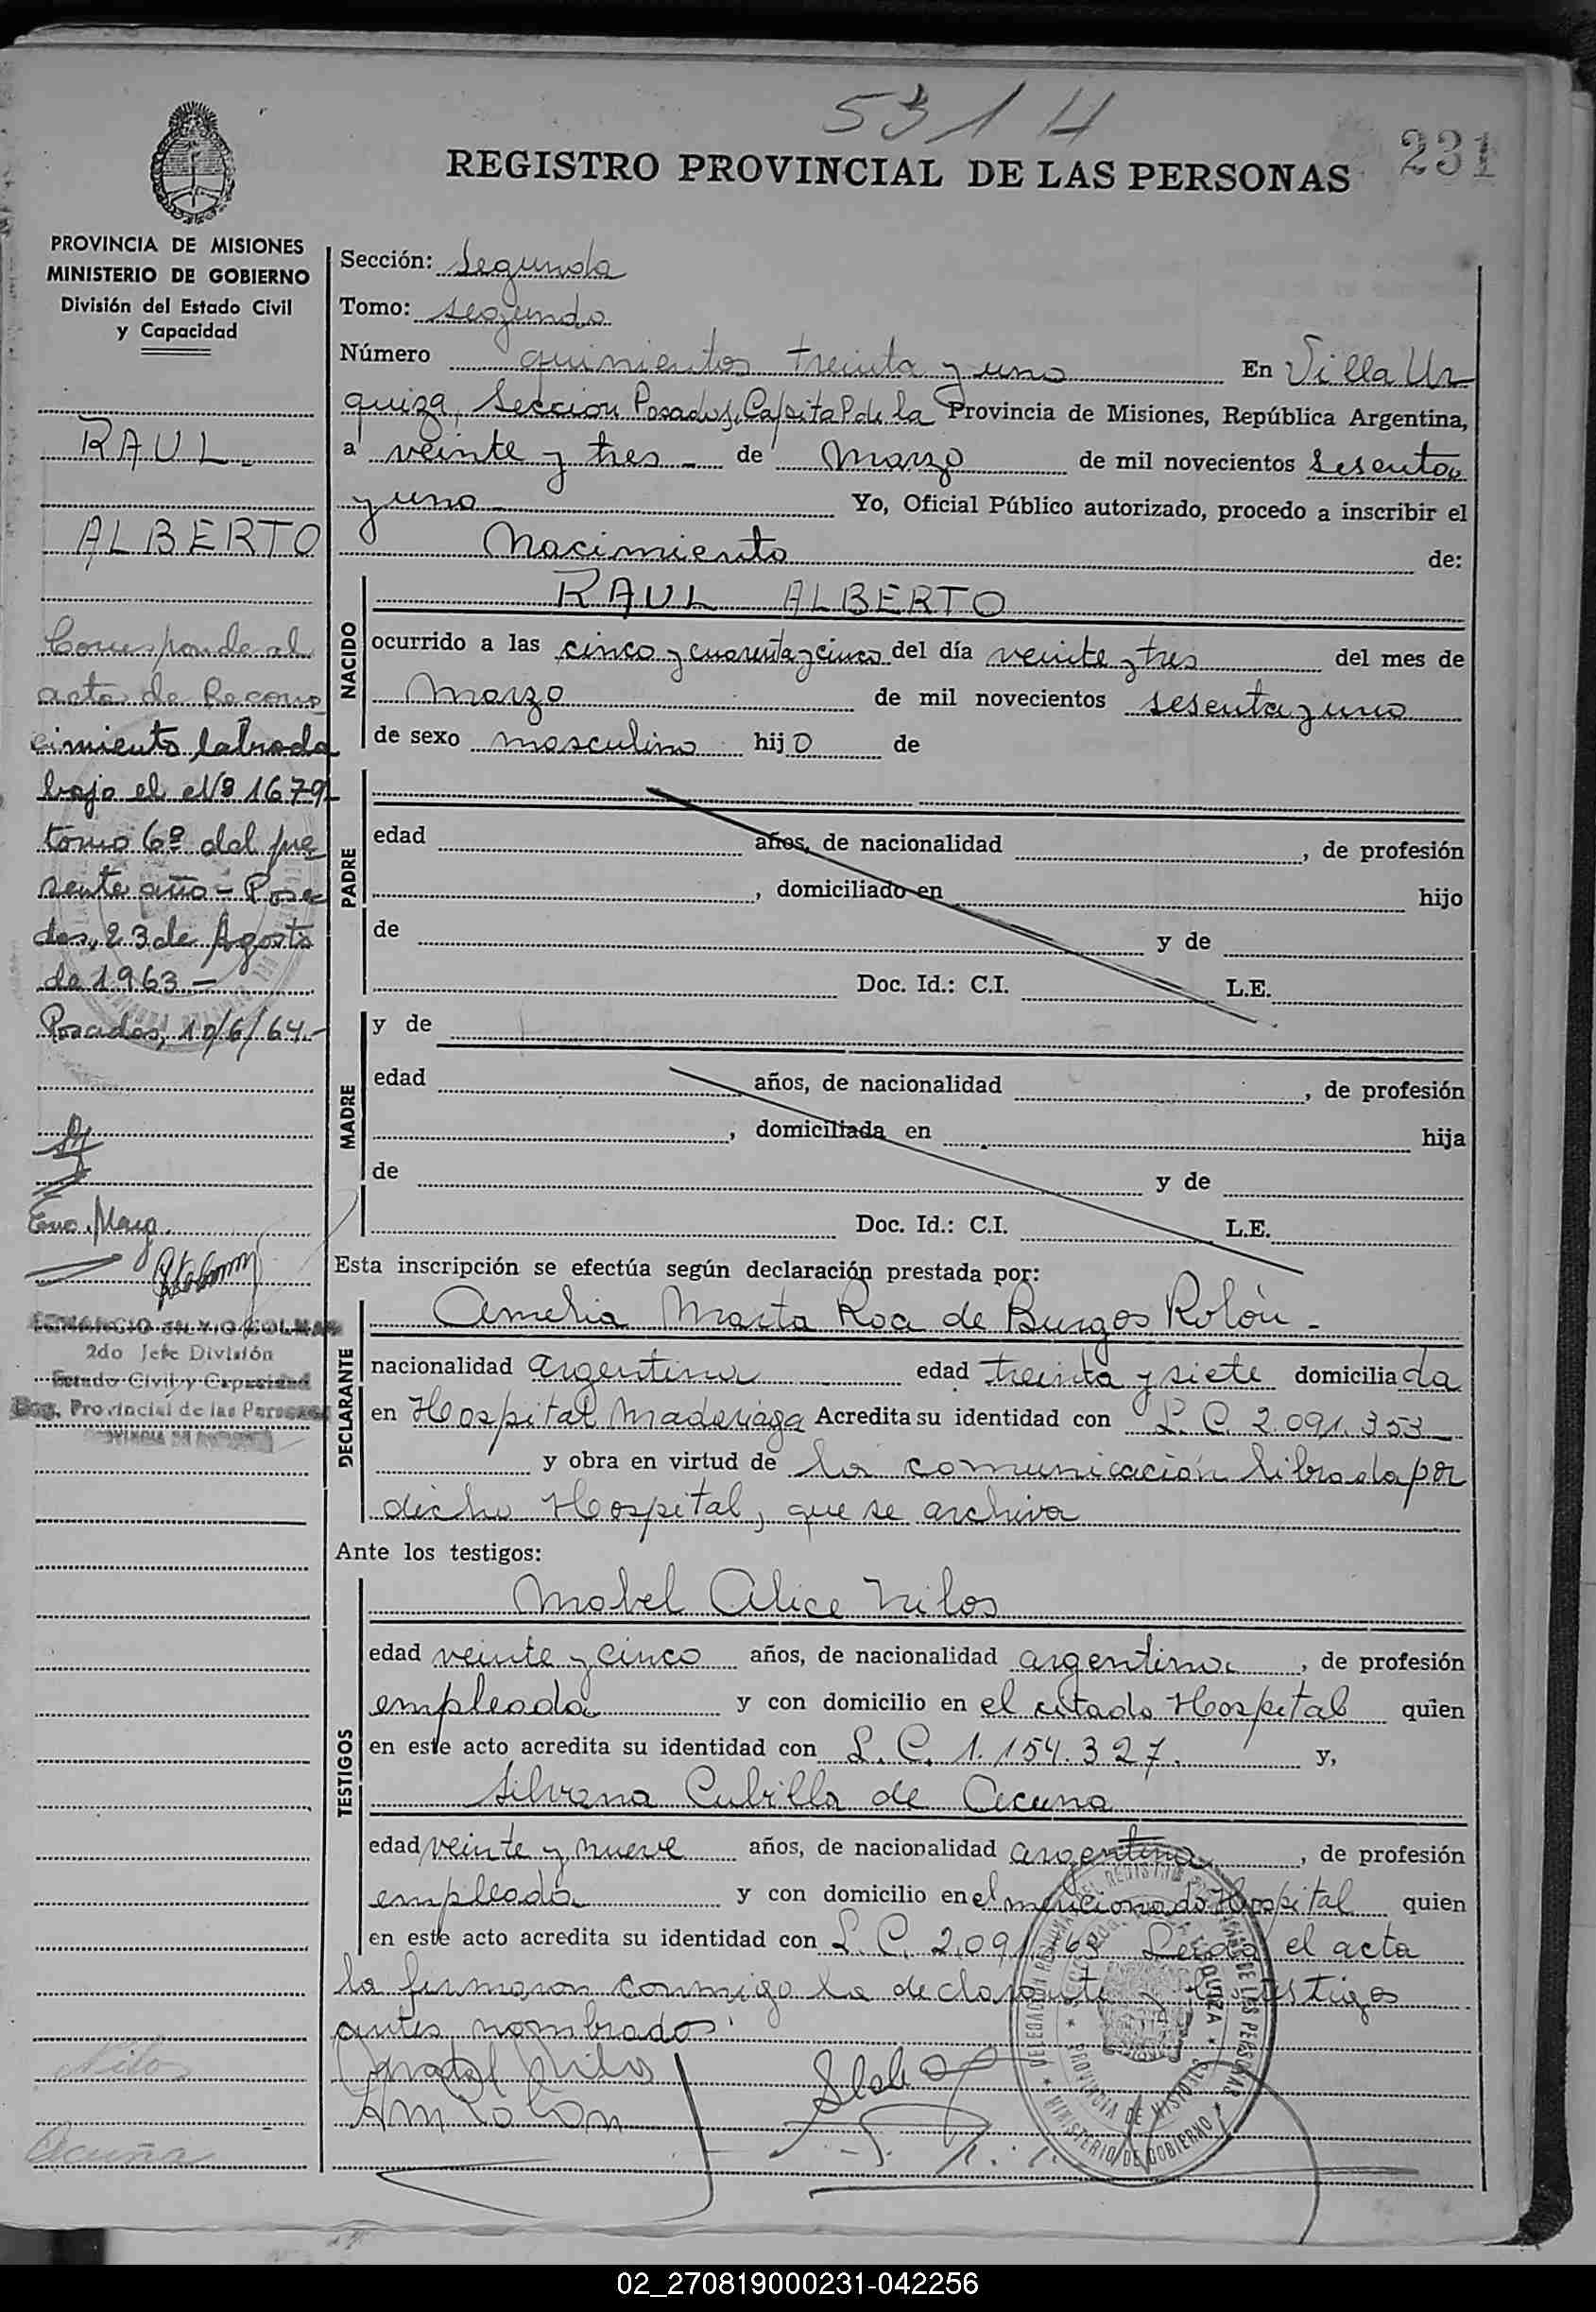 5314
231
REGISTRO PROVINCIAL DE LAS PERSONAS
PROVINCIA DE MISIONES
MINISTERIO DE GOBIERNO
División del Estado Civil
y Capacidad
RAUL
ALBERTO
Corresponde al
acta de Recono
cimiento labrada
bajo el Nº 1679
tomo 6º del pre
sente año - Posa
das, 23 de Agosto
de 1963 -
Posadas, 10/6/64.-
2do Jefe División
Estado Civil y Capacidad
Reg. Provincial de las Personas
Nilos
Acuña
Sección: Segunda
Tomo: segundo
Número quinientos treinta y uno En Villa Ur
quiza, Sección Posadas, Capital de la Provincia de Misiones, República Argentina,
a veinte y tres - de Marzo de mil novecientos sesenta
y uno - Yo, Oficial Público autorizado, procedo a inscribir el
Nacimiento de:
NACIDO
RAUL ALBERTO
ocurrido a las cinco y cuarenta y cinco del día veinte y tres del mes de
Marzo de mil novecientos sesenta y uno
de sexo masculino hijo de
PADRE
edad años, de nacionalidad , de profesión
, domiciliado en hijo
de y de
Doc. Id.: C.I. L.E.
MADRE
y de
edad años, de nacionalidad , de profesión
, domiciliada en hija
de y de
Doc. Id.: C.I. L.E.
Esta inscripción se efectúa según declaración prestada por:
DECLARANTE
Amelia Marta Roa de Burgos Rolón -
nacionalidad argentina edad treinta y siete domiciliada
en Hospital Madariaga Acredita su identidad con L. C. 2.091.353
y obra en virtud de la comunicación librada por
dicho Hospital, que se archiva
Ante los testigos:
TESTIGOS
Mabel Alice Nilos
edad veinte y cinco años, de nacionalidad argentina , de profesión
empleada y con domicilio en el citado Hospital quien
en este acto acredita su identidad con L. C. 1.154.327. y,
Silvana Cubilla de Acuna
edad veinte y nueve años, de nacionalidad argentina , de profesión
empleada y con domicilio en el mencionado Hospital quien
en este acto acredita su identidad con L. C. Leida el acta
la firmaron conmigo la declarante y los testigos
antes nombrados
02_270819000231-042256